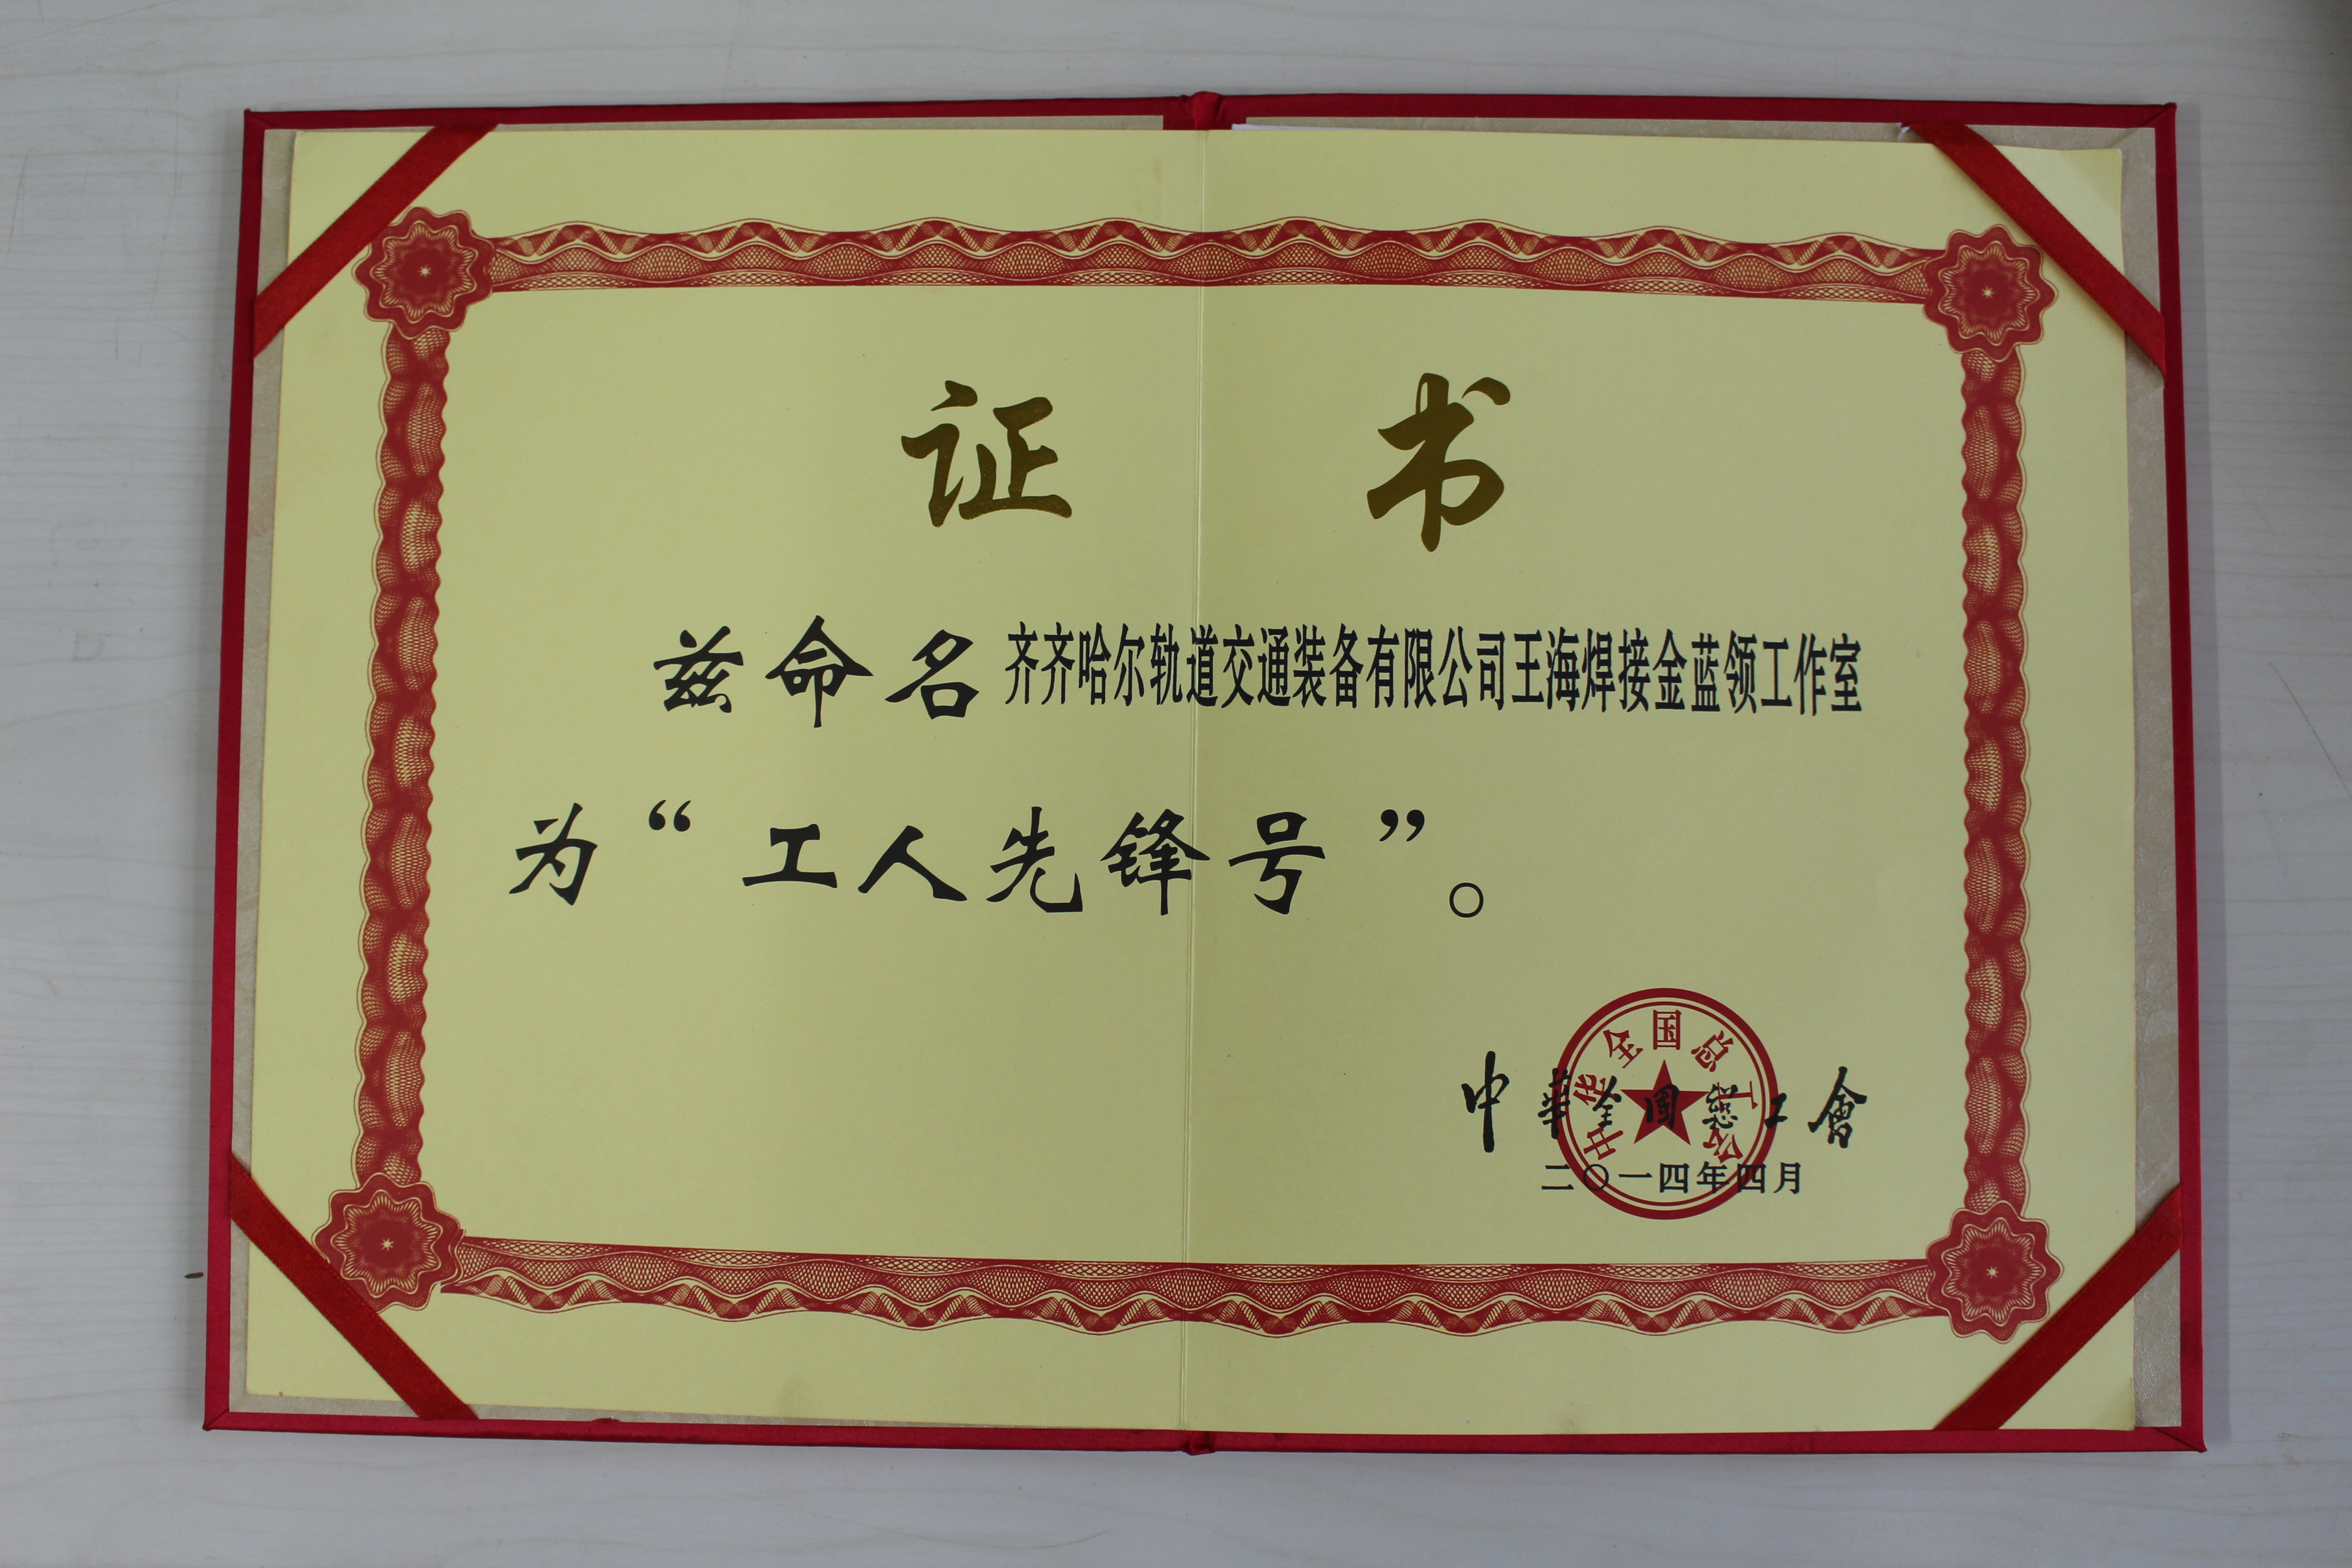 证 书
兹命名齐齐哈尔轨道交通装备有限公司王海焊接金蓝领工作室
为“工人先锋号”。
中华全国总工会
中華全國總工會
二〇一四年四月